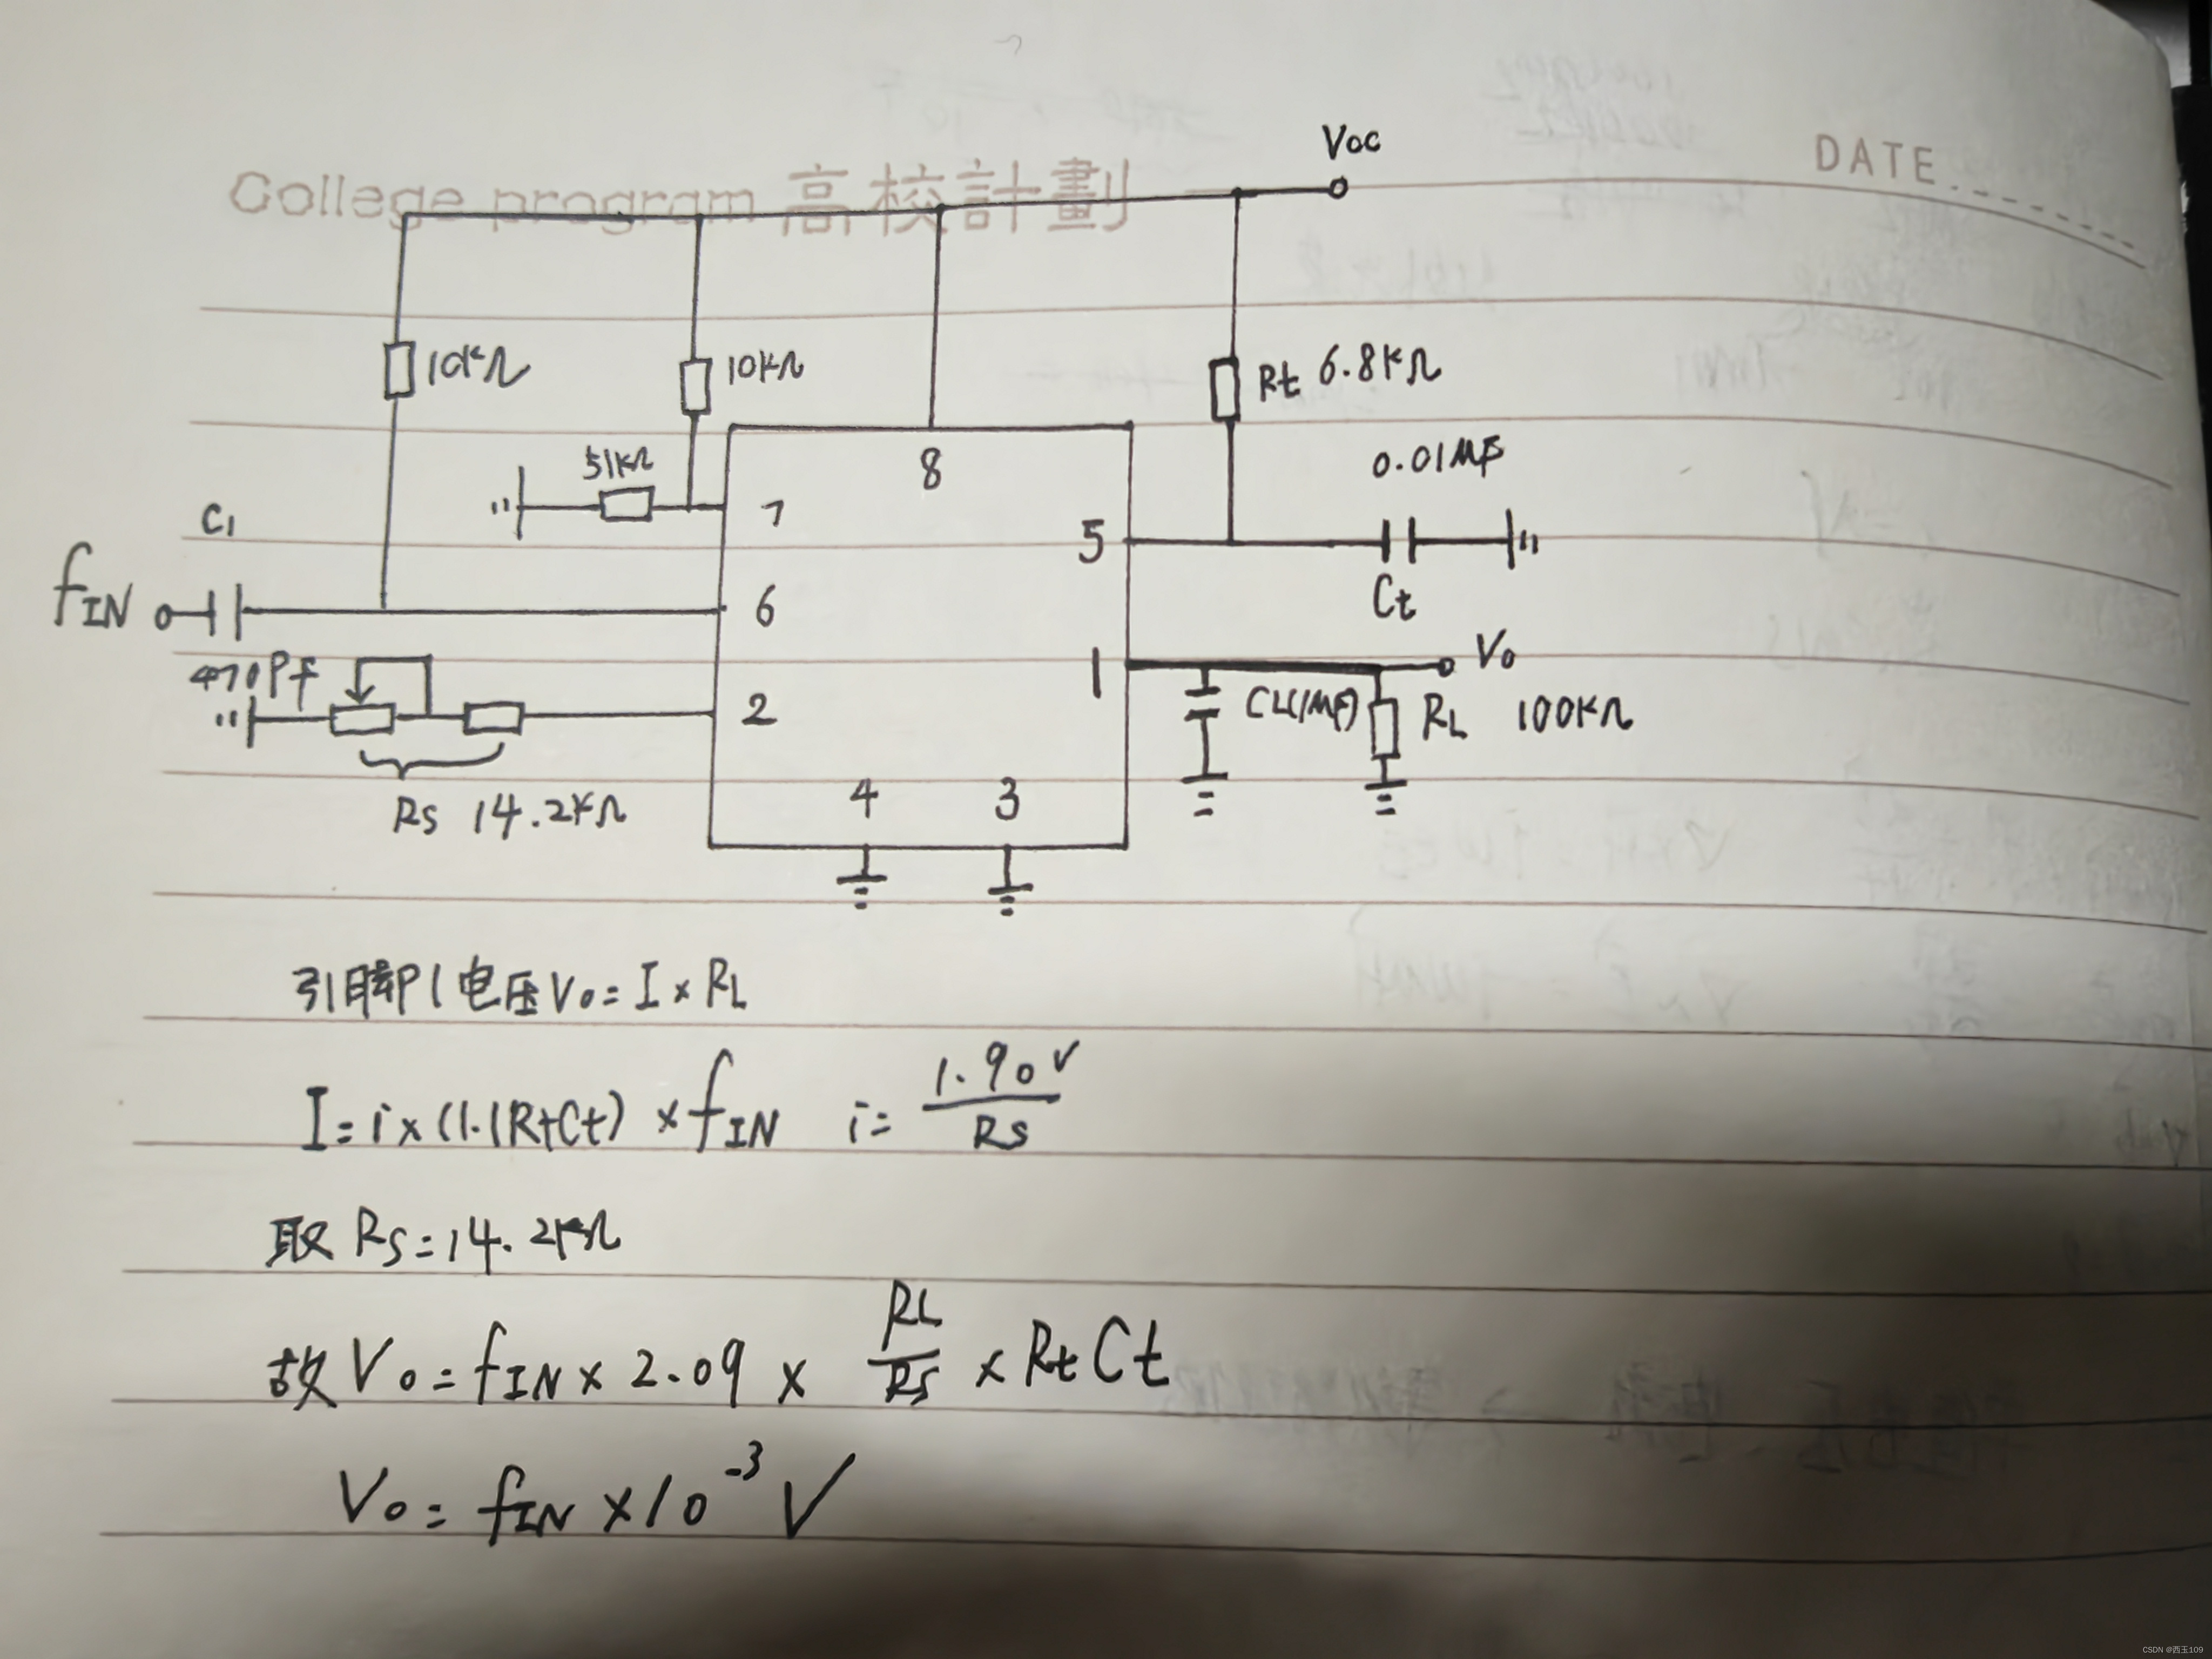 Voc
College program 高校計劃
DATE
10KΩ
10KΩ
Rt 6.8KΩ
51KΩ
8
0.01MF
C1
7
5
fIN
6
Ct
470Pf
1
Vo
2
CL(1MF)
RL 100KΩ
Rs 14.2KΩ
4
3
引脚P1电压Vo=I×RL
I=i×(1.1RtCt)×fIN i=1.90V/Rs
取 Rs=14.2KΩ
故Vo=fIN×2.09×RL/Rs×RtCt
Vo=fIN×10⁻³V
CSDN @西玉109